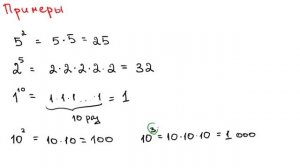 Примеры
5² = 5·5 = 25
2⁵ = 2·2·2·2·2 = 32
1¹⁰ = 1·1·1...·1 = 1
10 раз
10² = 10·10 = 100
10³ = 10·10·10 = 1 000